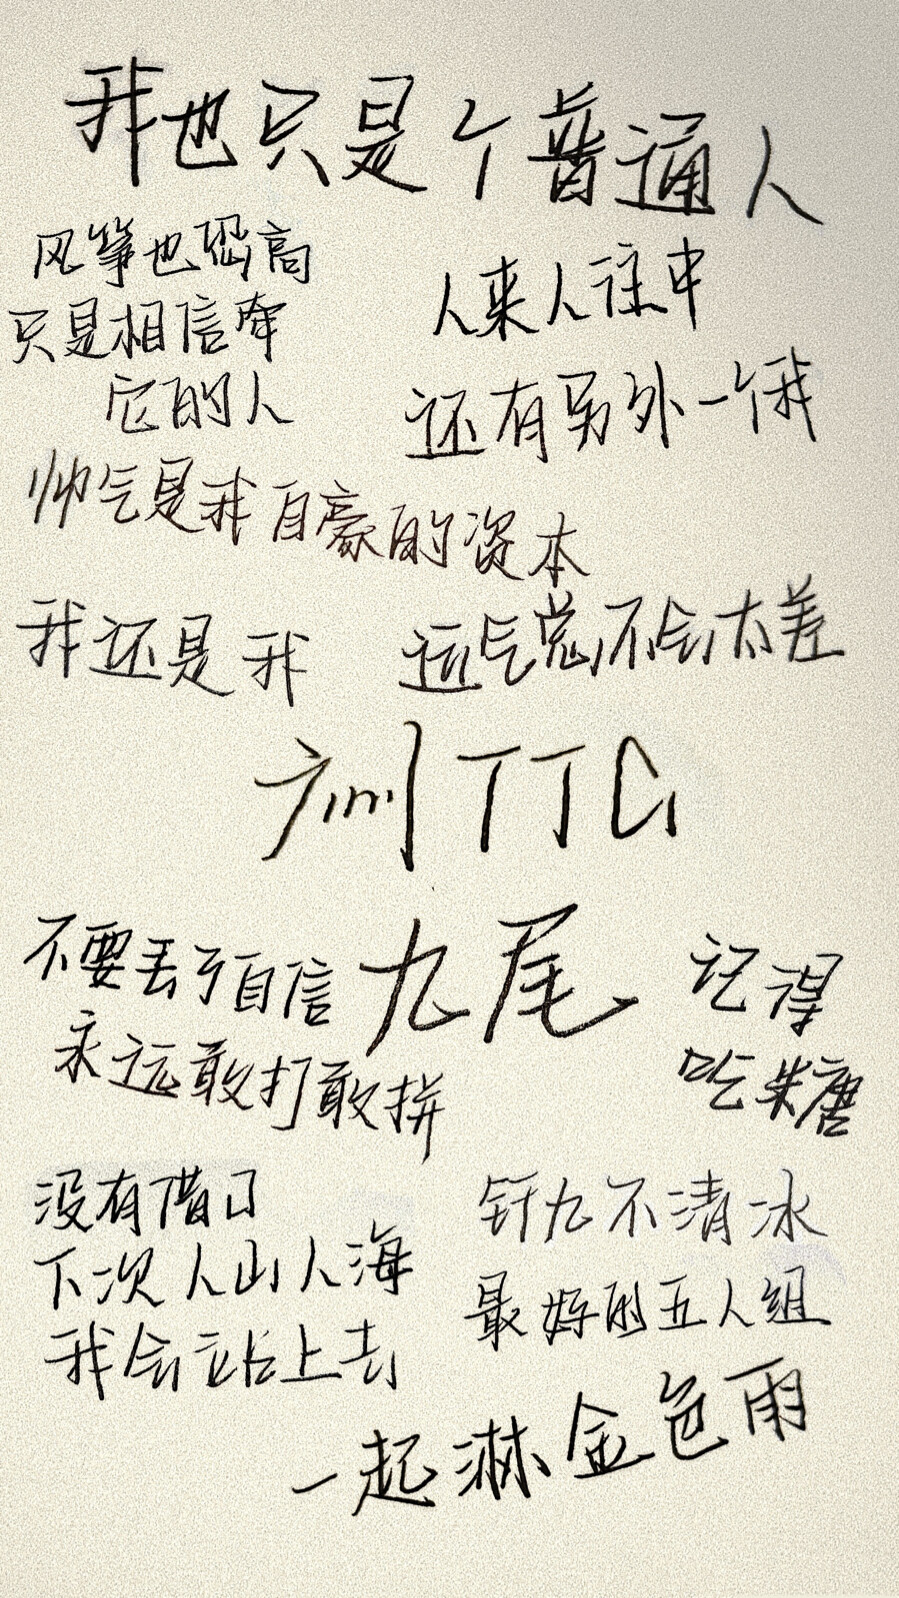 我也只是个普通人
风筝也恐高
只是相信牵
它的人
人来人往中
还有另外一个我
帅气是我自豪的资本
我还是我
运气总不会太差
广州TTG
九尾
不要丢了自信
永远敢打敢拼
记得
吃柒糖
没有借口
下次人山人海
我会站上去
钎九不清冰
最好的五人组
一起淋金色雨